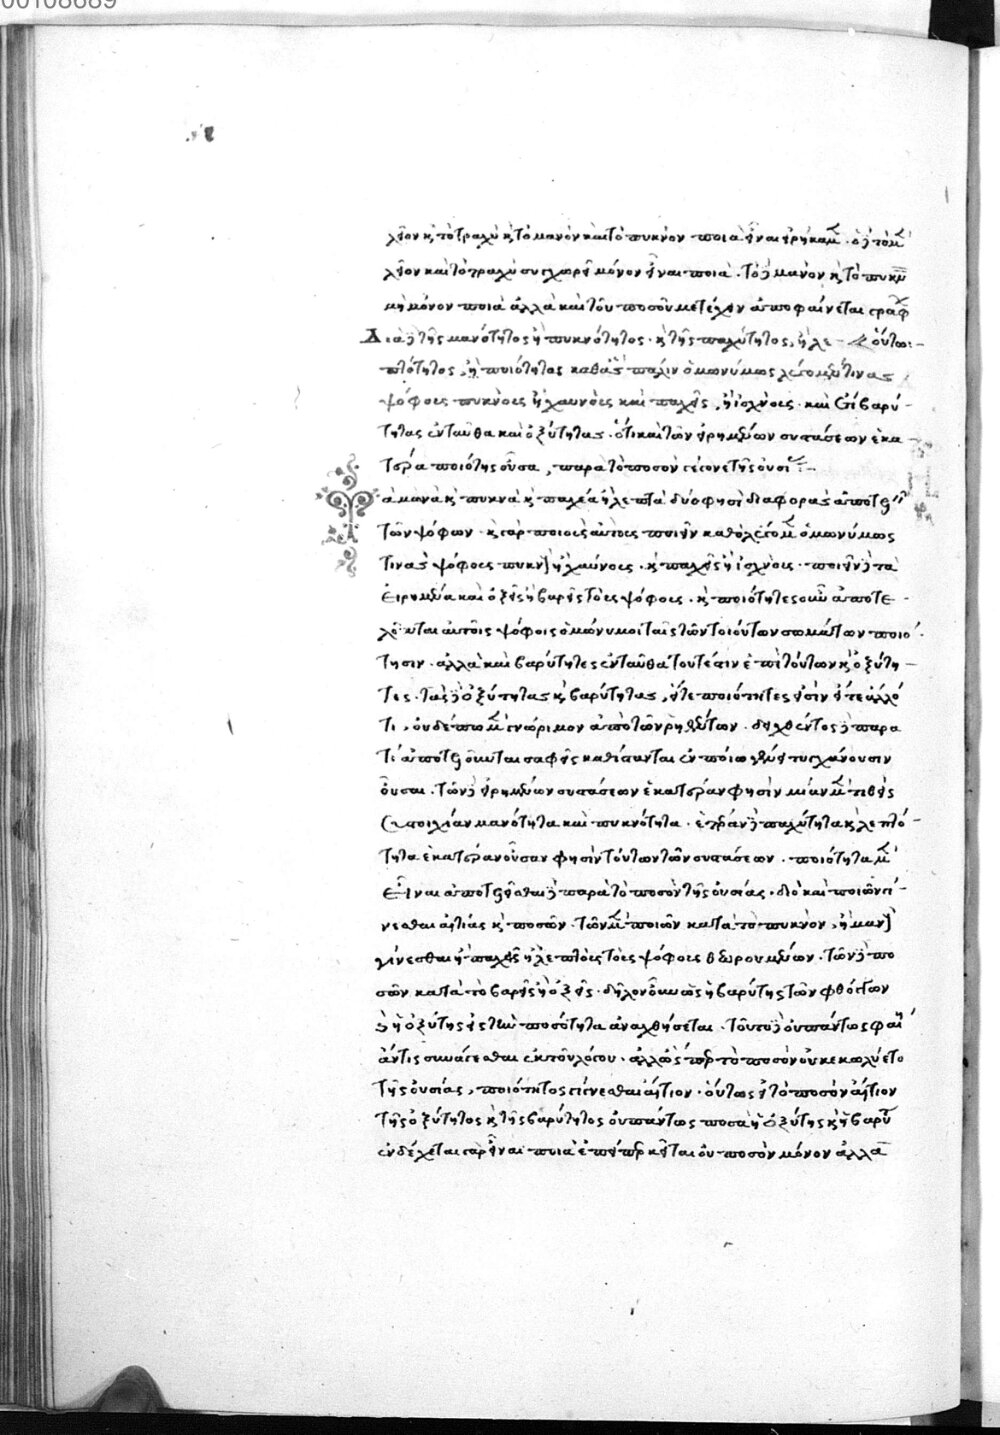 00108689
λεῖον κ̀ τὸ τραχὺ κ̀ τὸ μανὸν καὶ τὸ πυκνὸν ποιὰ εἶναι εἰρήκαμ. ὁ δὲ τὸ μ
λεῖον καὶ τὸ τραχὺ συγχωρεῖ μόνον εἶναι ποιά. τὸ δὲ μανὸν κ̀ τὸ πυκν
μὴ μόνον ποιὰ ἀλλὰ καὶ τοῦ ποσοῦ μετέχειν ἀποφαίνεται γραφ
Διὰ δὲ τῆς μανότητος ἢ πυκνότητος. κ̀ τῆς παχύτητος, ἢ λε οὕτω:
πτότητος, ἢ ποιότητας καθὰς πάλιν ὁμωνύμως λέγομέν τινας
ψόφους πυκνοὺς ἢ χαυνοὺς καὶ παχεῖς, ἢ ἰσχνούς. καὶ βαρύ-
τητας ἐνταῦθα καὶ ὀξύτητας. ὅτι καὶ τῶν εἰρημένων συστάσεων ἑκα
τέρα ποιότης οὖσα, παρὰ τὸ ποσὸν γέγονε τῆς οὐσί
Τὰ μανὰ κ̀ πυκνὰ κ̀ παχέα ἢ λεπτὰ δύο φησὶ διαφορὰς ἀποτε
τῶν ψόφων. κ̀ γὰρ ποιοὺς αὐτοὺς ποιεῖν καθὸ λέγομ ὁμωνύμως
τινας ψόφους πυκν ἢ χαύνους. κ̀ παχεῖς ἢ ἰσχνούς. ποιεῖν δὲ τὰ
εἰρημένα καὶ ὀξεῖς ἢ βαρεῖς τοὺς ψόφους. κ̀ ποιότητες οὖν ἀποτε-
λοῦνται αὐτοῖς ψόφοις ὁμώνυμοι ταῖς τῶν τοιούτων σωμάτων ποιό
τησιν. ἀλλὰ καὶ βαρύτητες ἐνταῦθα τουτέστιν ἐπὶ τούτων κ̀ ὀξύτη-
τες. τὰς δὲ ὀξύτητας κ̀ βαρύτητας, εἴτε ποιότητες εἰσὶν εἴτε ἄλλό
τι, οὐδέπω μ γνώριμον ἀπὸ τῶν ῥηθέντων. δειχθέντος δὲ παρὰ
τί ἀποτελοῦνται σαφεῖς καθίστανται ἐν ποίω γένει τυγχάνουσιν
οὖσαι. τῶν δὲ εἰρημένων συστάσεων ἑκατέραν φησὶν μίαν μ τιθεὶς
συστοιχίαν μανότητα καὶ πυκνότητα. ἑτέραν δὲ παχύτητα κ̀ λεπτό-
τητα ἑκατέραν οὖσαν φησὶν τούτων τῶν συστάσεων. ποιότητα μ
εἶναι ἀποτελεῖσθαι δὲ παρὰ τὸ ποσὸν τῆς οὐσίας. διὸ καὶ ποιῶν γί-
νεσθαι αἰτίας κ̀ ποσῶν. τῶν μ ποιῶν κατὰ τὸ πυκνὸν, ἢ μαν
γίνεσθαι ἢ παχεῖς ἢ λεπτοὺς τοὺς ψόφους θεωρουμένων. τῶν δὲ πο
σῶν κατὰ τὸ βαρεῖς ἢ ὀξεῖς. δῆλον ὅπως ἡ βαρύτης τῶν φθόγγων
δὲ ἡ ὀξύτης εἰς τὴν ποσότητα ἀναχθήσεται. τοῦτο δὲ οὐ πάντως φαί
ἄν τις συνάγεσθαι ἐκ τοῦ λόγου. ἀλλ ὥσπερ τὸ ποσὸν οὐκ ἐκωλύετο
τῆς οὐσίας, ποιότητος γίνεσθαι αἴτιον. οὕτως εἰ τὸ ποσὸν αἴτιον
τῆς ὀξύτητος κ̀ τῆς βαρύτητος οὐ πάντως ποσὰ ἡ ὀξύτης κ̀ ἡ βαρύ
ἐνδέχεται γὰρ εἶναι ποιὰ ἐπείπερ κεῖται οὐ ποσὸν μόνον ἀλλὰ